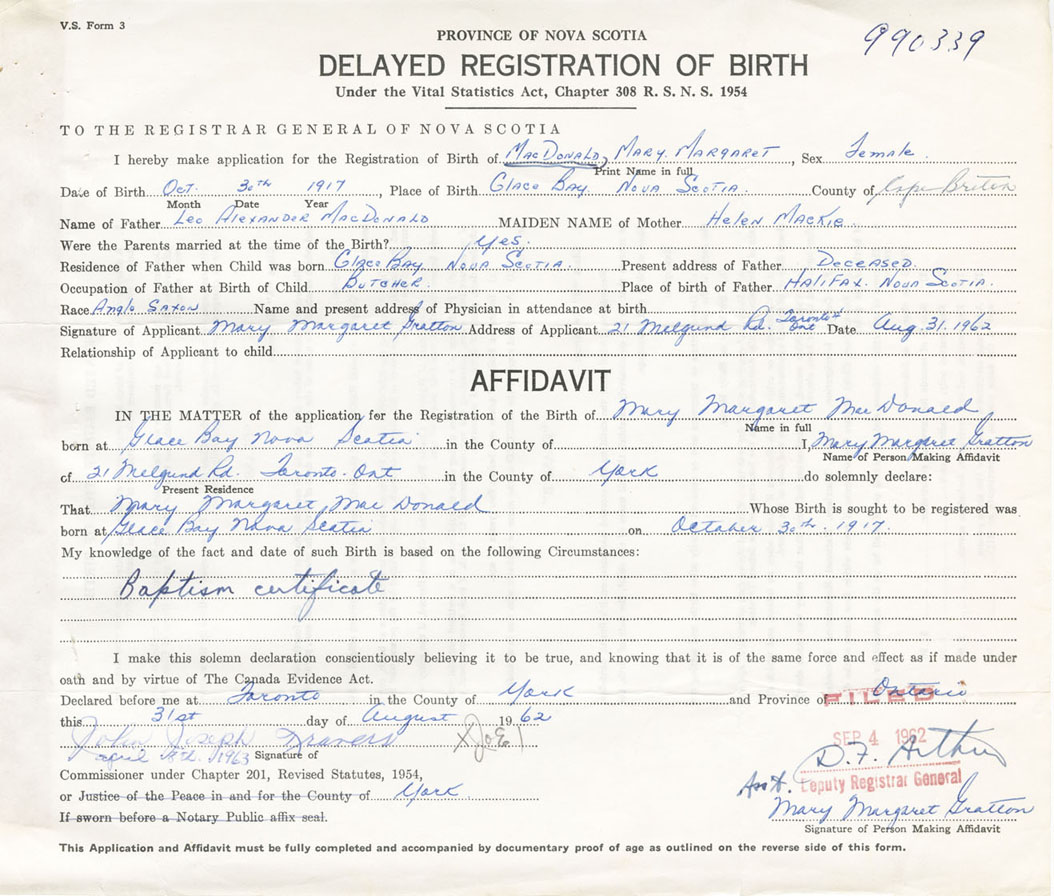 V.S. Form 3
990339
PROVINCE OF NOVA SCOTIA
DELAYED REGISTRATION OF BIRTH
Under the Vital Statistics Act, Chapter 308 R. S. N. S. 1954
TO THE REGISTRAR GENERAL OF NOVA SCOTIA
I hereby make application for the Registration of Birth of MacDonald, Mary Margaret, Sex Female.
Print Name in full
Date of Birth Oct. 30th 1917, Place of Birth Glace Bay Nova Scotia. County of Cape Breton
Month Date Year
Name of Father Leo Alexander MacDonald MAIDEN NAME of Mother Helen Mackie
Were the Parents married at the time of the Birth? Yes.
Residence of Father when Child was born Glace Bay Nova Scotia. Present address of Father Deceased.
Occupation of Father at Birth of Child Butcher. Place of birth of Father Halifax. Nova Scotia.
Race Anglo Saxon Name and present address of Physician in attendance at birth
Signature of Applicant Mary Margaret Gratton Address of Applicant 21 Melgund Rd. Toronto Ont Date Aug. 31. 1962
Relationship of Applicant to child
AFFIDAVIT
IN THE MATTER of the application for the Registration of the Birth of Mary Margaret MacDonald,
Name in full
born at Glace Bay Nova Scotia in the County of I, Mary Margaret Gratton
Name of Person Making Affidavit
of 21 Melgund Rd. Toronto-Ont in the County of York do solemnly declare:
Present Residence
That Mary Margaret MacDonald Whose Birth is sought to be registered was
born at Glace Bay Nova Scotia on October 30th. 1917.
My knowledge of the fact and date of such Birth is based on the following Circumstances:
Baptism certificate
I make this solemn declaration conscientiously believing it to be true, and knowing that it is of the same force and effect as if made under
oath and by virtue of The Canada Evidence Act.
Declared before me at Toronto in the County of York and Province of Ontario
FILED
this 31st day of August 1962
SEP 4 1962
John Joseph Travers
april 18th. 1963 Signature of
D.F. Arthur
Commissioner under Chapter 201, Revised Statutes, 1954,
Asst. Deputy Registrar General
or Justice of the Peace in and for the County of York
Mary Margaret Gratton
If sworn before a Notary Public affix seal.
Signature of Person Making Affidavit
This Application and Affidavit must be fully completed and accompanied by documentary proof of age as outlined on the reverse side of this form.